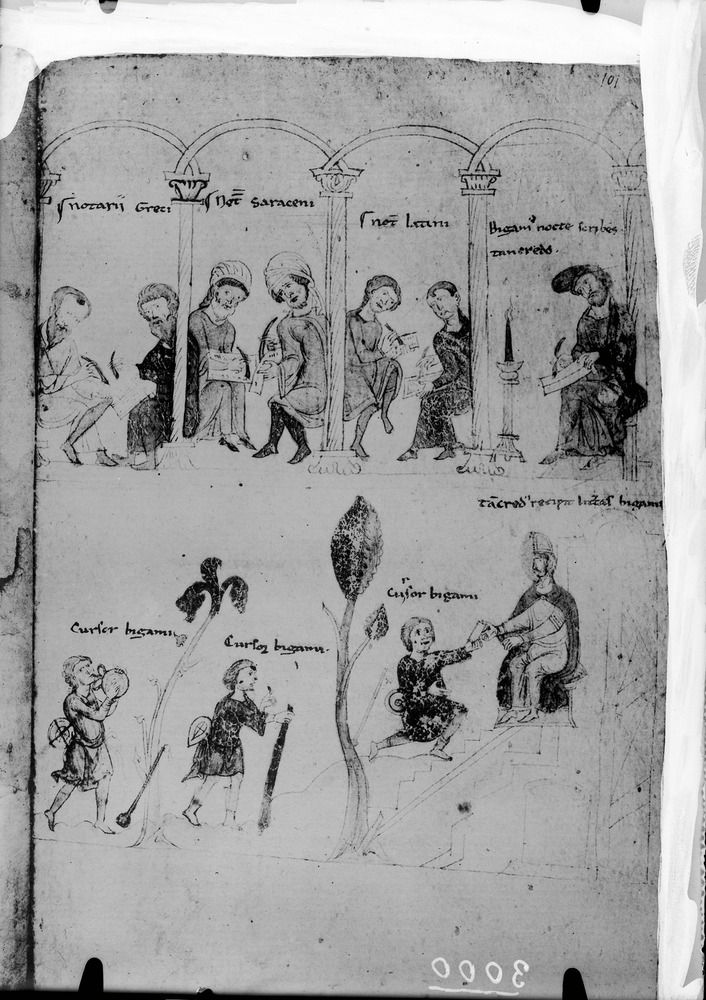 101
notarii Greci
Not Saraceni
not Latini
Bigami nocte scribes
tancredo.
tacred recipit litteras bigami
Cursor bigami
Cursor bigami
Cursor bigami.
3000